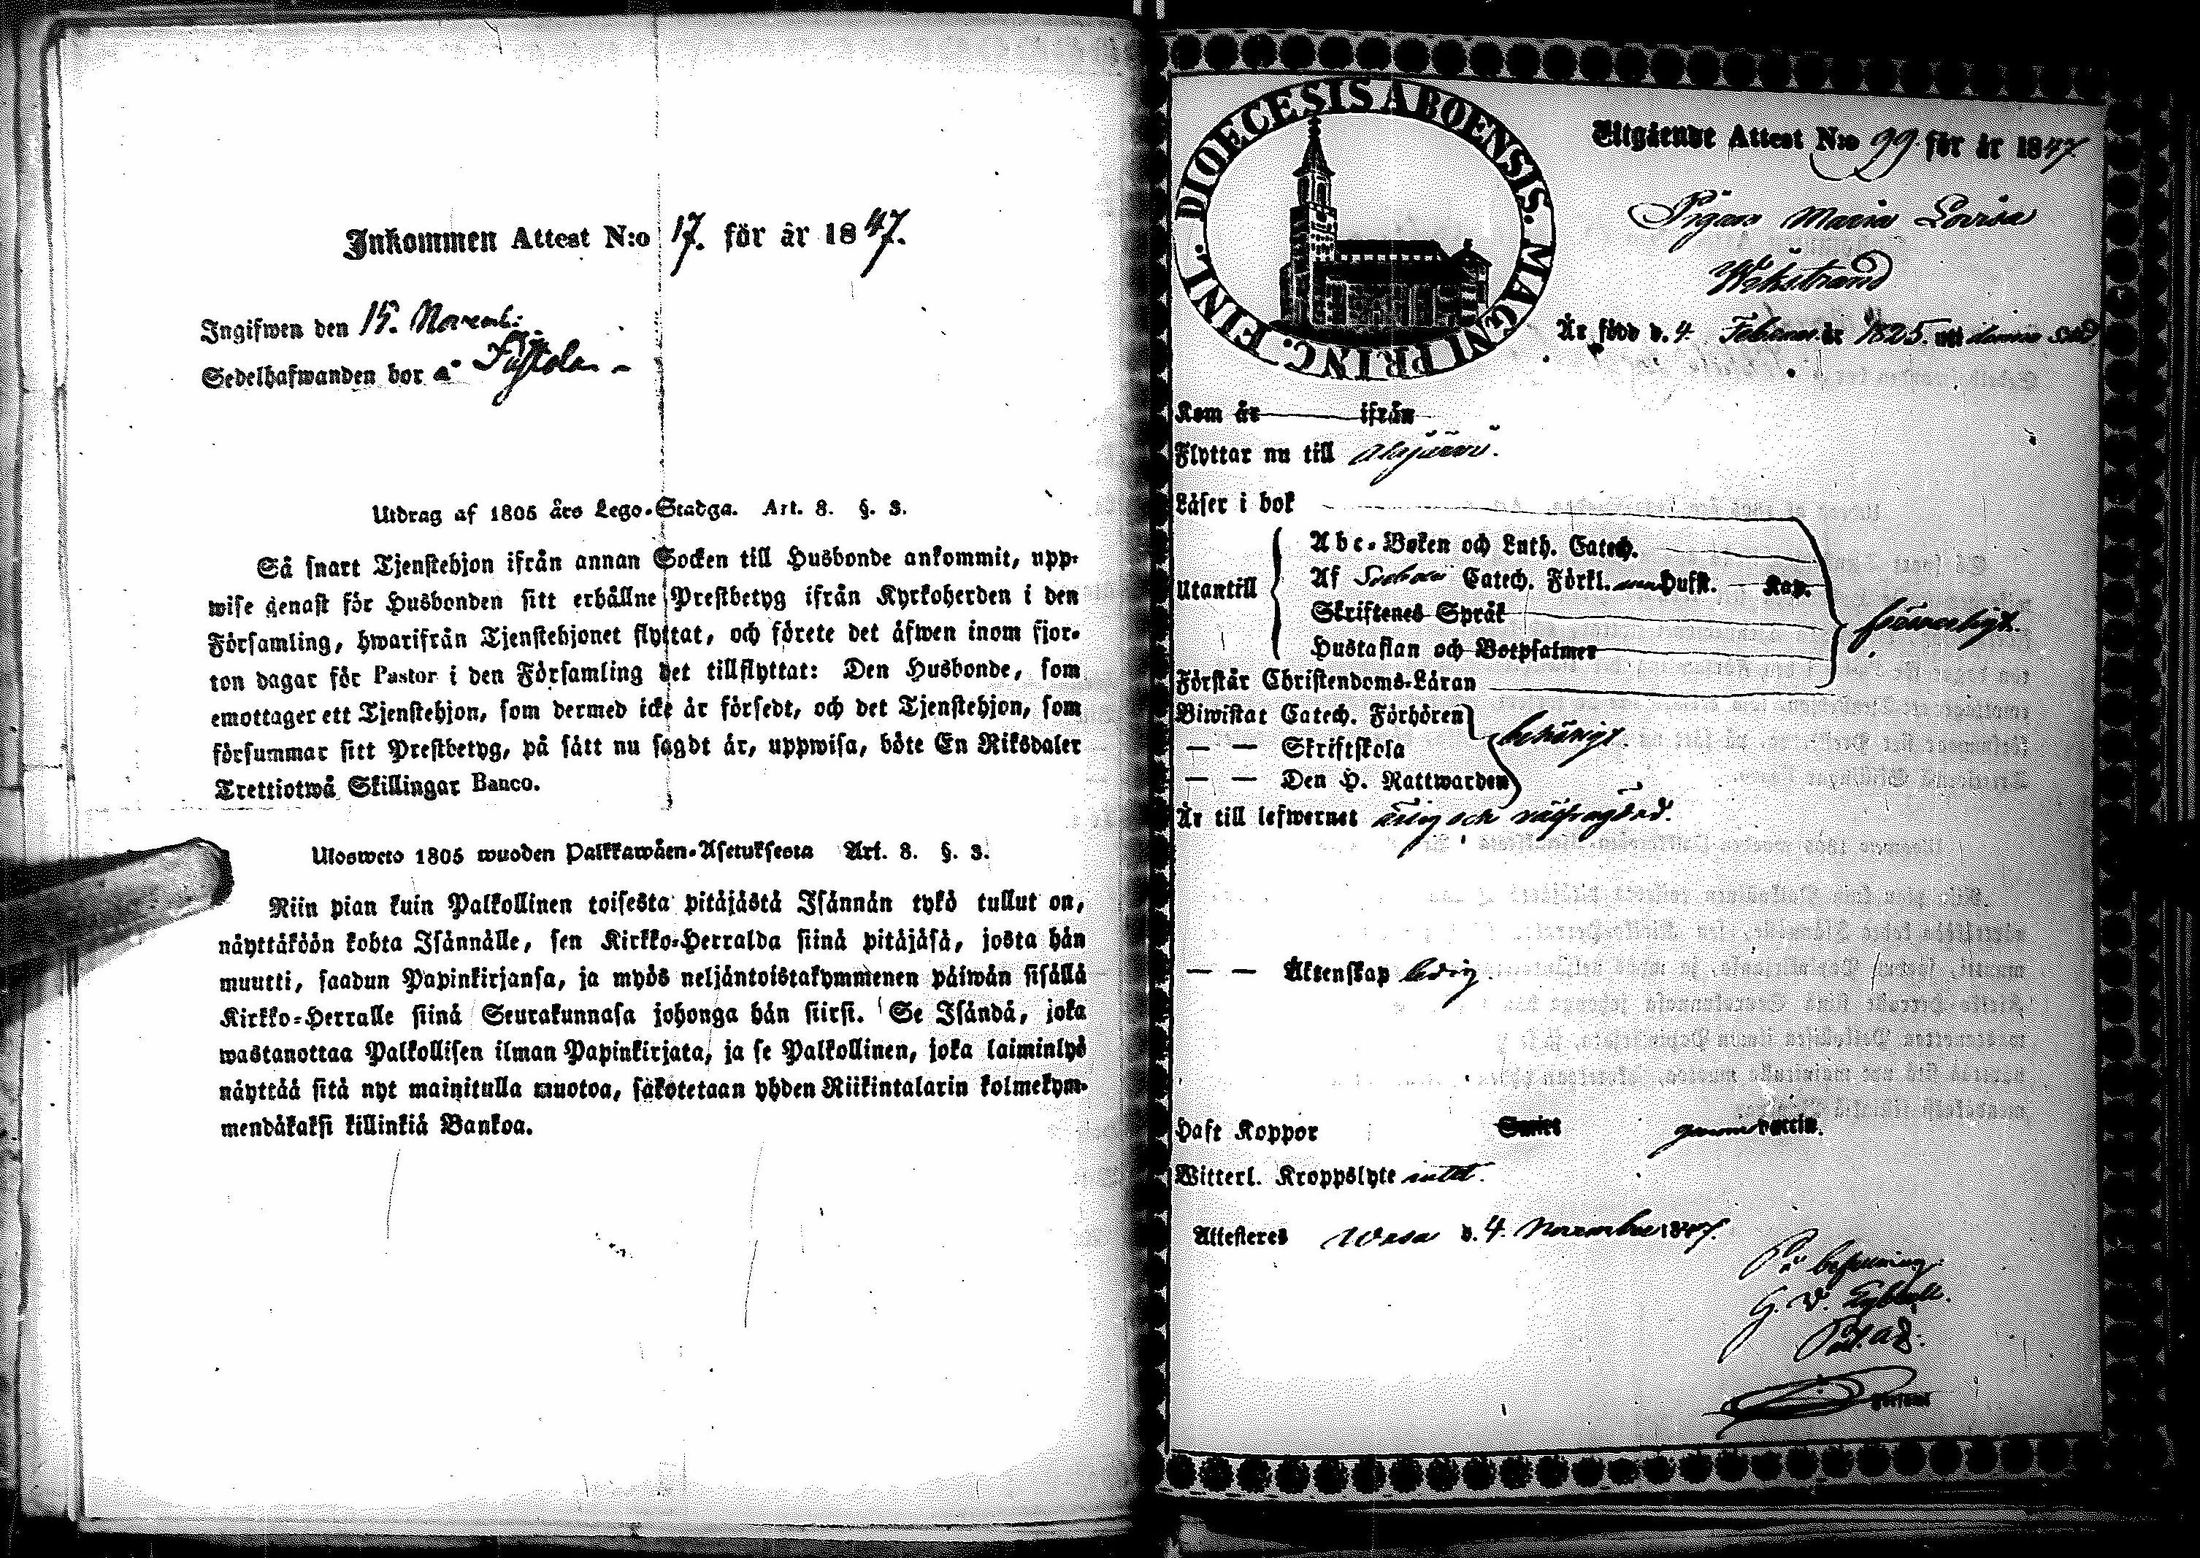 Inkommen Attest N:o 17. för år 1847.
Ingifwen den 15. Novemb:
Sedelhafwanden bor å
Utdrag af 1805 års Lego-Stadga. Art. 8. §. 3.
Så snart Tjenstehjon ifrån annan Socken till Husbonde ankommit, upp-
wise genast för Husbonden sitt erhållne Prestbetyg ifrån Kyrkoherden i den
Församling, hwarifrån Tjenstehjonet flyttat, och förete det äfwen inom fjor-
ton dagar för Pastor i den Församling det tillflyttat: Den Husbonde, som
emottager ett Tjenstehjon, som dermed icke är försedt, och det Tjenstehjon, som
försummar sitt Prestbetyg, på sätt nu sagdt är, uppwisa, böte En Riksdaler
Trettiotwå Skillingar Banco.
Ulosweto 1805 wuoden Palkkawäen-Asetuksesta Art. 8. §. 3.
Niin pian kuin Palkollinen toisesta pitäjästä Isännän tykö tullut on,
näyttäköön kohta Isännälle, sen Kirkko-Herralda siinä pitäjäsä, josta hän
muutti, saadun Papinkirjansa, ja myös neljäntoistakymmenen päiwän sisällä
Kirkko-Herralle siinä Seurakunnasa johonga hän siirsi. Se Isändä, joka
wastanottaa Palkollisen ilman Papinkirjata, ja se Palkollinen, joka laiminlyö
näyttää sitä nyt mainitulla muotoa, sakotetaan yhden Riikintalarin kolmekym-
mendäkaksi killinkiä Bankoa.
DIOECESIS ABOENSIS. MAGNI PRINC. FINL.
Utgående Attest N:o 99 för år 1847.
Pigan Maria Lovisa
Wikstrand
Är född d. 4 Februari år 1825. uti denna Stad
Kom år ifrån
Flyttar nu till Alajärvi.
Läser i bok
Utantill
Abc-Boken och Luth. Catech.
Af Catech. Förkl. Hufst. Kap.
Skriftenes Språk
Hustaflan och Botpsalmer
försvarligt.
Förstår Christendoms-Läran
Biwistat Catech. Förhören
— — Skriftskola
— — Den H. Nattwarden
behörigt
Är till lefwernet ärlig och välfrägdad.
— — Äktenskap ledig.
Haft Koppor
Witterl. Kroppslyte intet.
Attesteras Wasa d. 4. November 1847.
På befallning
G. W.
Past. adj.